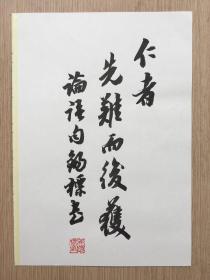 仁者
先難而後獲
論語句錫標書